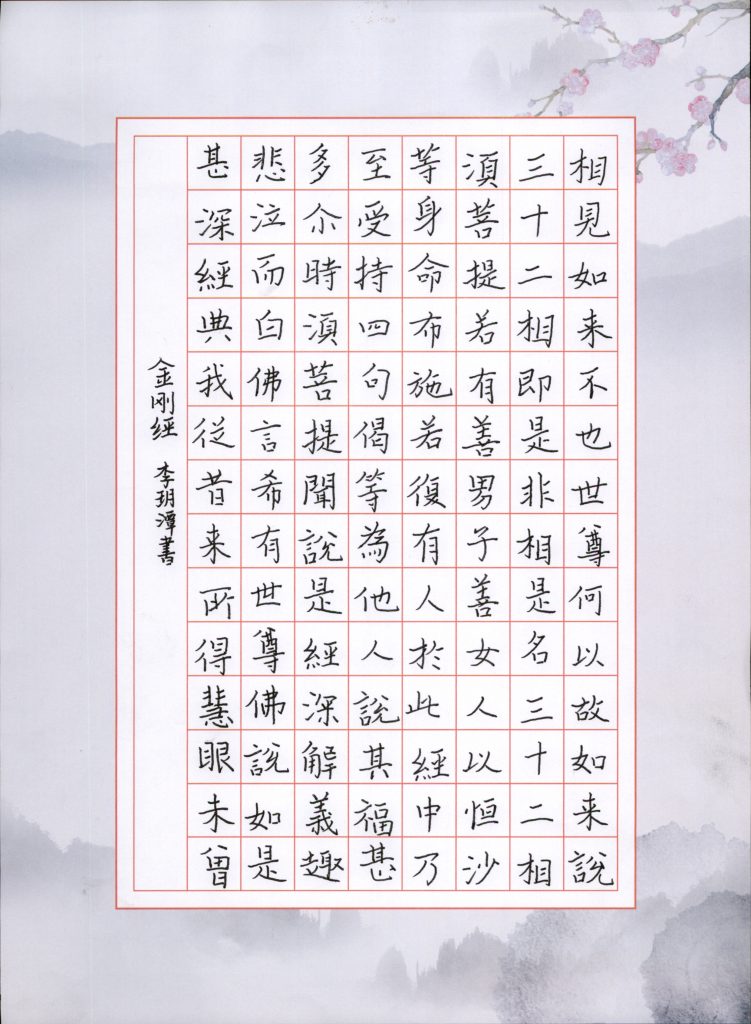 相見如来不也世尊何以故如来說
三十二相即是非相是名三十二相
湏菩提若有善男子善女人以恒沙
等身命布施若復有人於此經中乃
至受持四句偈等為他人說其福甚
多尒時湏菩提聞說是經深解義趣
悲泣而白佛言希有世尊佛說如是
甚深經典我從昔来所得慧眼未曾
金剛經 李玥潭書